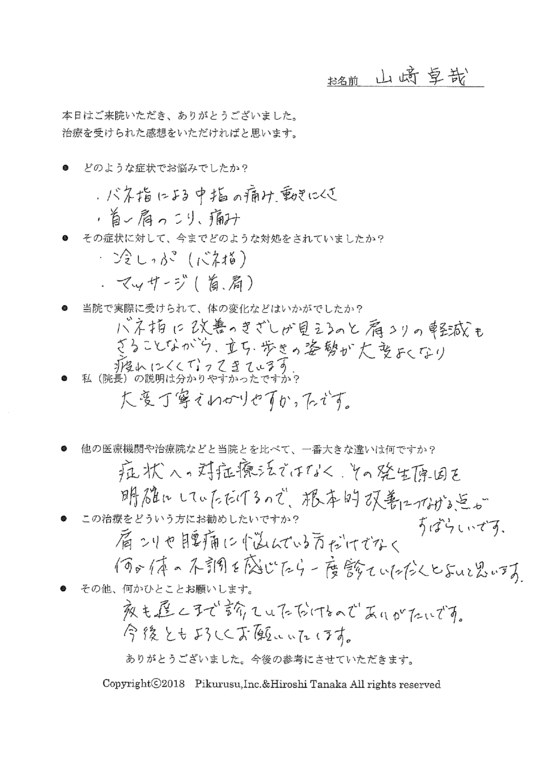 お名前 山﨑卓哉
本日はご来院いただき、ありがとうございました。
治療を受けられた感想をいただければと思います。
● どのような症状でお悩みでしたか？
・バネ指による中指の痛み、動きにくさ
・首〜肩のこり、痛み
● その症状に対して、今までどのような対処をされていましたか？
・冷しっぷ（バネ指）
・マッサージ（首、肩）
● 当院で実際に受けられて、体の変化などはいかがでしたか？
バネ指に改善のきざしが見えるのと肩こりの軽減も
さることながら、立ち・歩きの姿勢が大変よくなり
疲れにくくなってきています。
● 私（院長）の説明は分かりやすかったですか？
大変丁寧でわかりやすかったです。
● 他の医療機関や治療院などと当院とを比べて、一番大きな違いは何ですか？
症状への対症療法ではなく、その発生原因を
明確にしていただけるので、根本的改善につながる点が
すばらしいです。
● この治療をどういう方にお勧めしたいですか？
肩こりや腰痛に悩んでいる方だけでなく
何か体の不調を感じたら一度診ていただくとよいと思います。
● その他、何かひとことお願いします。
夜も遅くまで診ていただけるのでありがたいです。
今後ともよろしくお願いいたします。
ありがとうございました。今後の参考にさせていただきます。
Copyright©2018 Pikurusu,Inc.&Hiroshi Tanaka All rights reserved